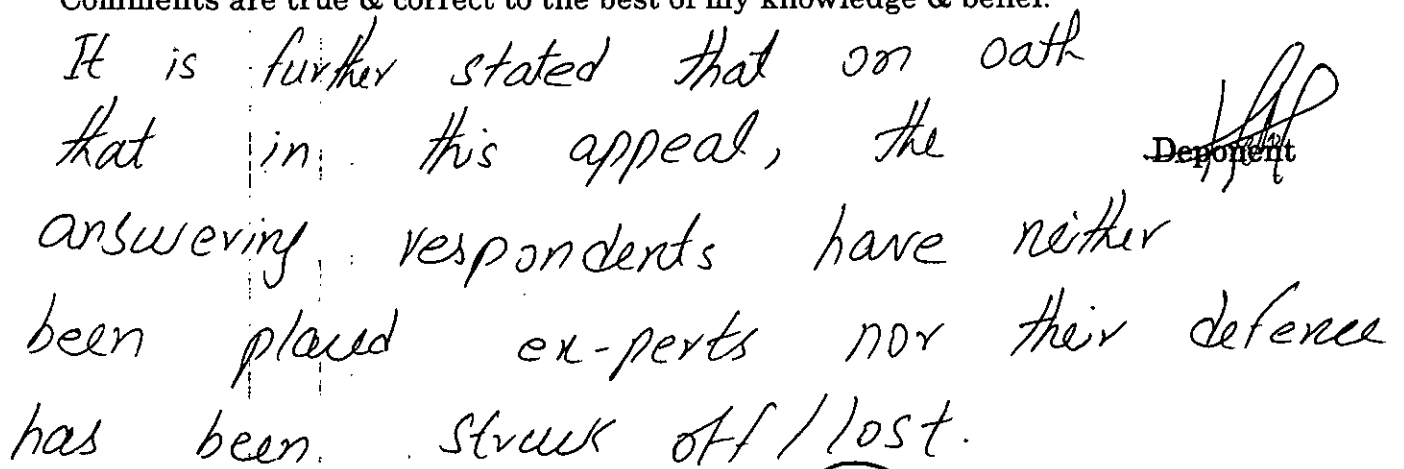 Comments are true & correct to the best of my knowledge & belief.
It is further stated that on oath
that in this appeal, the
Deponent
answering respondents have neither
been placed ex-perts nor their defence
has been struck off/lost.